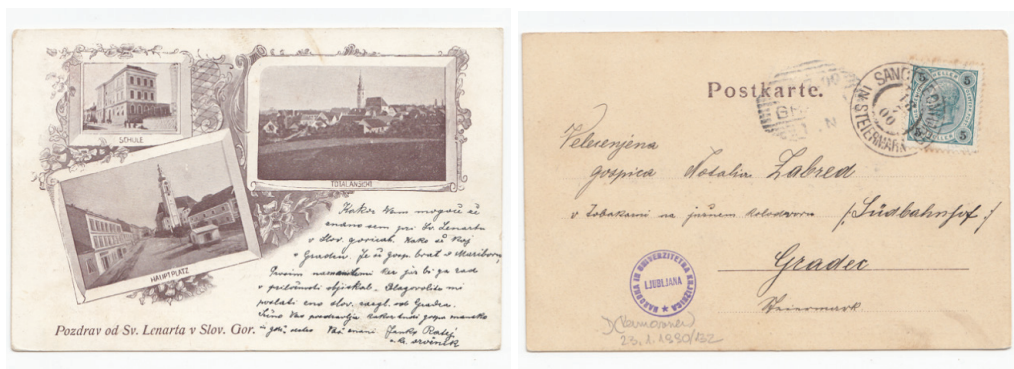 SCHULE
TOTALANSICHT
HAUPTPLATZ
Kakor Vam mogoče že
znano sem pri Sv. Lenartu
v Slov. goricah. Kako že Kaj
v Gradcu. Je še gosp. brat v Mariboru,
Prosim naznanite mi ker jaz bi ga rad
v priložnosti objiskal. Blagovolite mi
poslati eno slov. razgl. od Gradca.
Vaš znani Janko
Pozdrav od Sv. Lenarta v Slov. Gor.
Postkarte.
SANCT
IN STEIERMARK
5 5
Velecenjena
gospica Rosalia Zabred
v tobakarni na južnem kolodvoru (Südbahnhof)
Gradec
Steiermark
NARODNA IN UNIVERZITETNA KNJIŽNICA
LJUBLJANA
23.1.1990/132